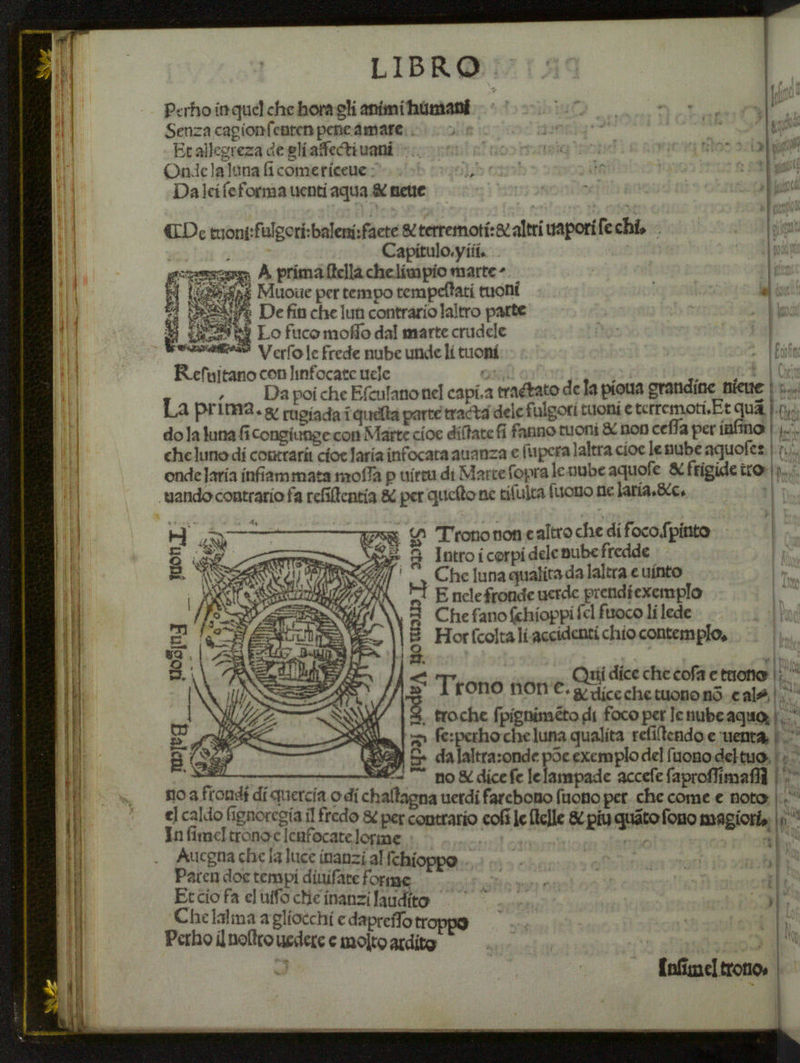 LIBRO
Perho in quel che hora gli animi humani
Senza cagion senten pene amare
Et allegreza de gli affecti uani
Onde la luna si come riceue
Da lei se forma uenti aqua & neue
¶De tuoni: fulgori: baleni: saete & terremoti: & altri uapori sechi.
Capitulo.yiii.
A prima stella che limpio marte
Muoue per tempo tempestati tuoni
De fin che lun contrario laltro parte
Lo fuco mosso dal marte crudele
Verso le frede nube unde li tuoni
Resultano con linfocate uele
Da poi che Esculano nel capi.a tractato de la pioua grandine nieue
La prima. & rugiada ĩ questa parte tracta dele fulgori tuoni e terremoti. Et quã
do la luna si congiunge con Marte cioe distate si fanno tuoni & non cessa per infino
che luno di contrarii cioe laria infocata auanza e supera laltra cioe le nube aquose:
onde laria infiammata mossa p uirtu di Marte sopra le nube aquose & frigide tro
uando contrario fa resistentia & per questo ne risulta suono ne laria.&c.
Tuoni Fulgori Baleni
Saete Terremoti Vapori sechi
Trono non e altro che di foco spinto
Intro i corpi dele nube fredde
Che luna qualita da laltra e uinto
E nele fronde uerde prendi exemplo
Che fano schioppi sel fuoco li lede
Hor scolta li accidenti chio contemplo.
Qui dice che cosa e tuono
Trono non e. & dice che tuono nõ e al
tro che spignimẽto di foco per le nube aquo
se: perho che luna qualita resistendo e uenta
da laltra: onde põe exemplo del suono del tuo
no & dice se le lampade accese saprossimassi
no a frondi di quercia o di chastagna uerdi farebono suono per che come e noto
el caldo signoregia il fredo & per contrario cosi le stelle & piu quãto sono magiori.
In simel trono e lenfocate lorme
Auegna che la luce inanzi al schioppo
Paren doe tempi diuisate forme
Et cio fa el uisso che inanzi laudito
Che lalma a gliocchi e dapresso troppo
Perho il nostro uedere e molto ardito
Insimel trono.